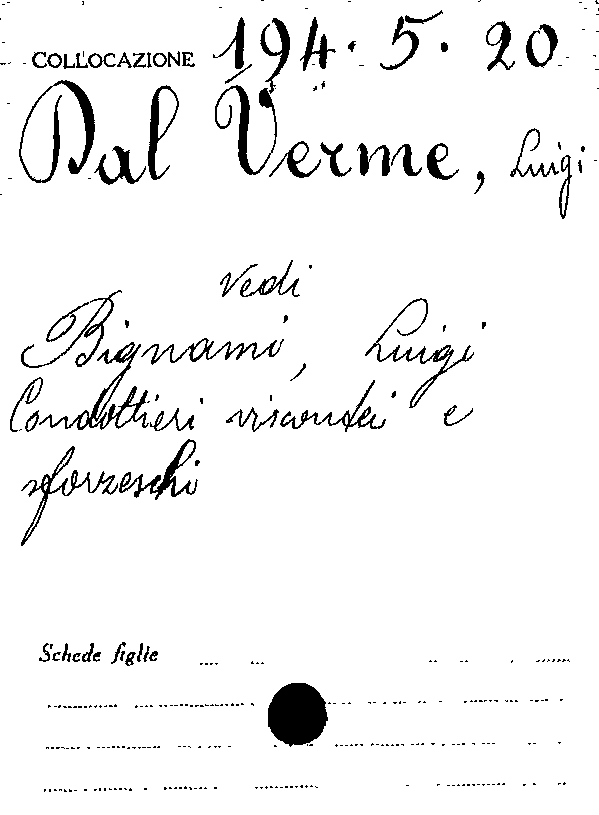 COLLOCAZIONE 194.5.20
Dal Verme, Luigi
Vedi
Bignami, Luigi
Condottieri viscontei e
sforzeschi
Schede figlie